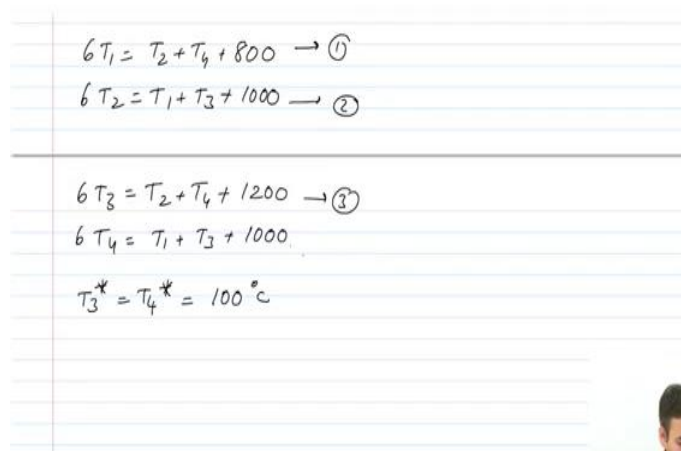 6T₁ = T₂ + T₄ + 800 → ①
6T₂ = T₁ + T₃ + 1000 — ②
6T₃ = T₂ + T₄ + 1200 → ③
6T₄ = T₁ + T₃ + 1000.
T₃* = T₄* = 100°C